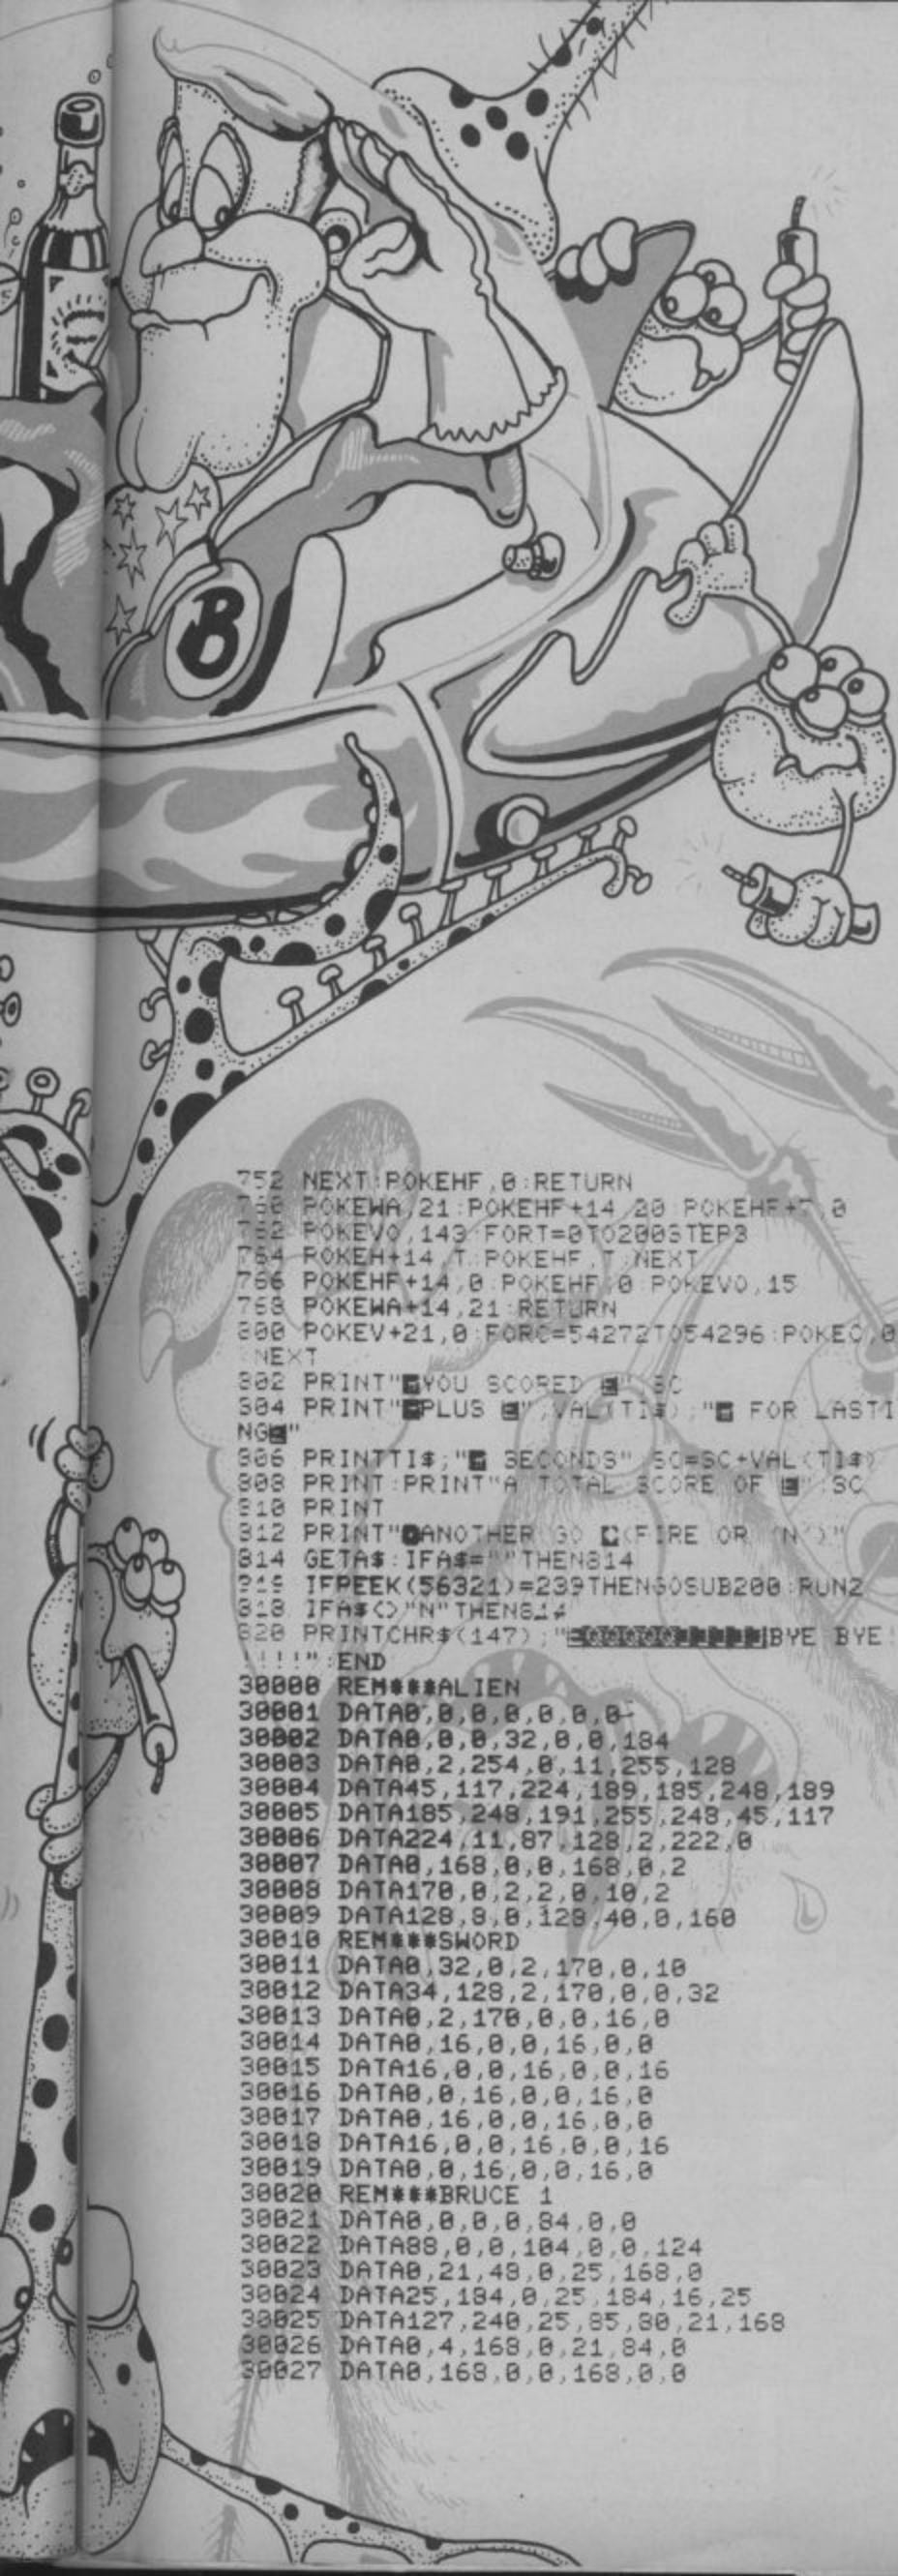 B
752 NEXT:POKEHF,0:RETURN
760 POKEWA,21:POKEHF+14,20:POKEHF+7,0
762 POKEVO,143:FORT=0TO200STEP3
764 POKEH+14,T:POKEHF,T:NEXT
766 POKEHF+14,0:POKEHF,0:POKEVO,15
768 POKEWA+14,21:RETURN
800 POKEV+21,0:FORC=54272TO54296:POKEC,0
:NEXT
802 PRINT"YOU SCORED ";SC
804 PRINT"PLUS ";VAL(TI$);" FOR LASTI
NG"
806 PRINTTI$;" SECONDS":SC=SC+VAL(TI$)
808 PRINT:PRINT"A TOTAL SCORE OF ";SC
810 PRINT
812 PRINT"ANOTHER GO (FIRE OR 'N')"
814 GETA$:IFA$=""THEN814
816 IFPEEK(56321)=239THENGOSUB200:RUN2
818 IFA$<>"N"THEN814
820 PRINTCHR$(147);"BYE BYE!
!!!!":END
30000 REM***ALIEN
30001 DATA0,0,0,0,0,0,0
30002 DATA0,0,0,32,0,0,184
30003 DATA0,2,254,0,11,255,128
30004 DATA45,117,224,189,185,248,189
30005 DATA185,248,191,255,248,45,117
30006 DATA224,11,87,128,2,222,0
30007 DATA0,168,0,0,168,0,2
30008 DATA170,0,2,2,0,10,2
30009 DATA128,8,0,128,40,0,160
30010 REM***SWORD
30011 DATA0,32,0,2,170,0,10
30012 DATA34,128,2,170,0,0,32
30013 DATA0,2,170,0,0,16,0
30014 DATA0,16,0,0,16,0,0
30015 DATA16,0,0,16,0,0,16
30016 DATA0,0,16,0,0,16,0
30017 DATA0,16,0,0,16,0,0
30018 DATA16,0,0,16,0,0,16
30019 DATA0,0,16,0,0,16,0
30020 REM***BRUCE 1
30021 DATA0,0,0,0,84,0,0
30022 DATA88,0,0,104,0,0,124
30023 DATA0,21,48,0,25,168,0
30024 DATA25,184,0,25,184,16,25
30025 DATA127,240,25,85,80,21,168
30026 DATA0,4,168,0,21,84,0
30027 DATA0,168,0,0,168,0,0